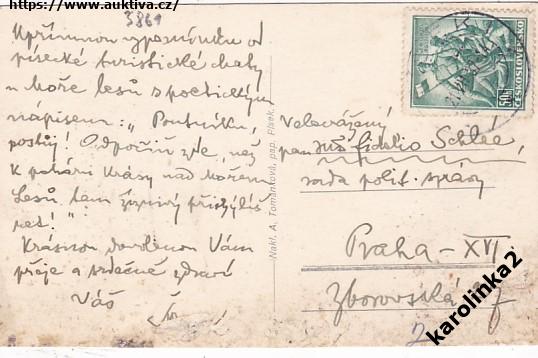 https://www.auktiva.cz/
3869
Upřímnou vzpomínku od
písecké turistické chaty
u Moře lesů s poetickým
nápisem: „Poutníku,
postůj! Odpočiň zde, než
k poháru krásy nad mořem
lesů tam žíznivý přichýlíš
ret!"
Krásnou dovolenou Vám
přeje a srdečně zdraví
Váš
Nakl. A. Tománková, pap. Písek.
50 h
ČESKOSLOVENSKO
Velevážený
pan Fidelio Schlée,
rada polit. správy
Praha - XVI
Zborovská
karolinka2